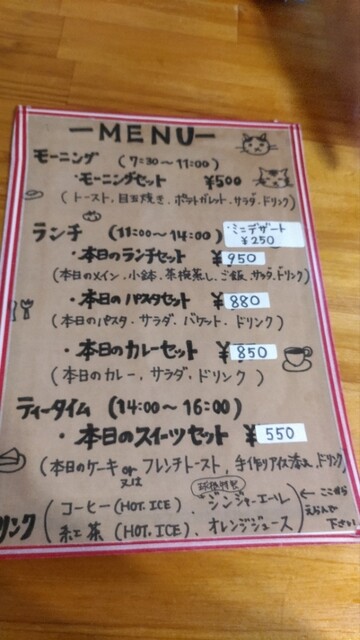 ーMENUー
モーニング (7:30〜11:00)
・モーニングセット ¥500
(トースト、目玉焼き、ポットガレット、サラダ、ドリンク)
ランチ (11:00〜14:00)
・ミニデザート
¥250
・本日のランチセット ¥950
(本日のメイン、小鉢、茶椀蒸し、ご飯、サラダ、ドリンク)
・本日のパスタセット ¥880
(本日のパスタ、サラダ、バケット、ドリンク)
・本日のカレーセット ¥850
(本日のカレー、サラダ、ドリンク)
ティータイム (14:00〜16:00)
・本日のスイーツセット ¥550
(本日のケーキ or 又は フレンチトースト、手作りアイス添え、ドリンク)
リンク
コーヒー(HOT、ICE)、ジンジャーエール
紅茶 (HOT、ICE)、オレンジジュース
←ここから
えらんで
下さい